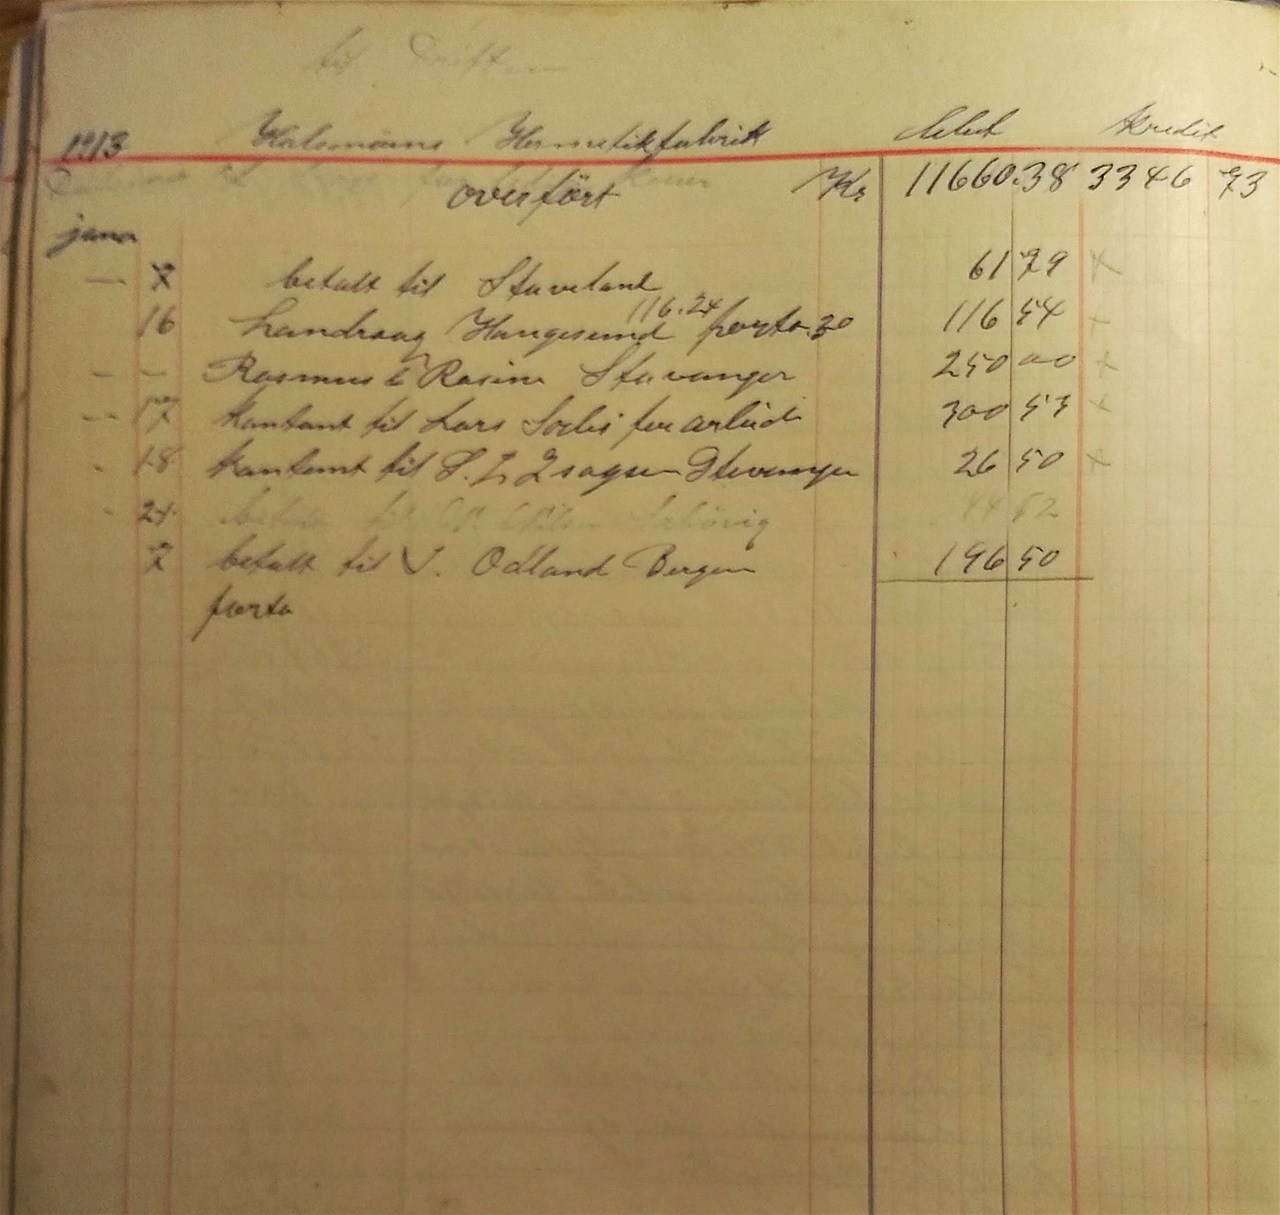 til Driften
1913 Hermetikfabrik debet kredit
overført Kr 11660.38 3346 73
janu
— 7 betalt til Staveland 61 79 x
116.24
16 Landraag Haugesund porto .30 116 54 x
— — Rasmus & Rasine Stavanger 250 00 x
— 17 kontant til Lars for arbeid 300 53 x
- 18 kontant til S. L Isagsen Stavanger 26 50 x
- 24 betalt til
7 betalt til V. Odland Bergen 196 50
porto